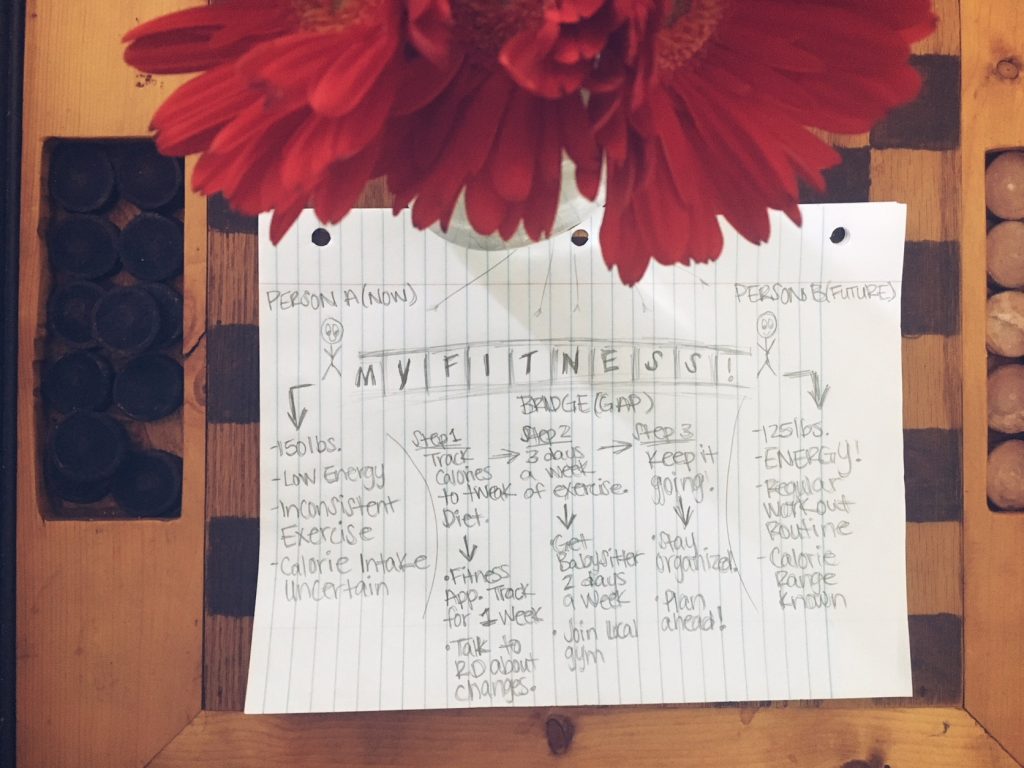 PERSON A (NOW)
PERSON B (FUTURE)
MY FITNESS!
BRIDGE (GAP)
-150lbs.
-Low Energy
-Inconsistent
Exercise
-Calorie Intake
Uncertain
Step 1
Track
calories
to tweak
Diet.
• Fitness
App. Track
for 1 week
• Talk to
RD about
changes.
Step 2
3 days
a week
of exercise.
• Get
Babysitter
2 days
a week
• Join local
gym
Step 3
Keep it
going!
• Stay
organized!
• Plan
ahead!
-125lbs.
-ENERGY!
-Regular
Workout
Routine
-Calorie
Range
Known